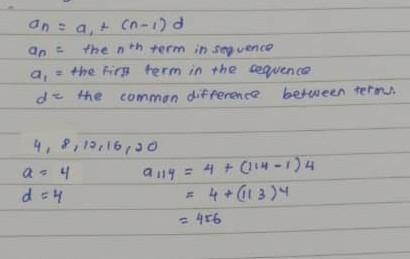 an = a, + (n-1) d
an = the nth term in sequence
a, = the first term in the sequence
d = the common difference between terms.
4, 8, 12, 16, 20
a = 4 a114 = 4 + (114-1)4
d = 4 = 4 + (113)4
= 456